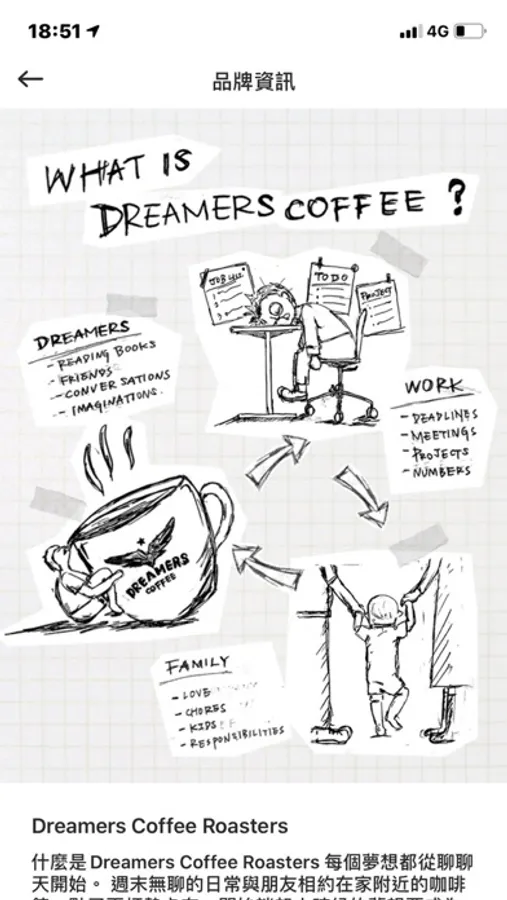 18:51
4G
品牌資訊
WHAT IS
DREAMERS COFFEE ?
JOB 4U2
TO DO
PROJECT
DREAMERS
- READING BOOKS
- FRIENDS
- CONVERSATIONS
- IMAGINATIONS.
WORK
- DEADLINES
- MEETINGS
- PROJECTS
- NUMBERS
DREAMERS
COFFEE
FAMILY
- LOVE
- CHORES
- KIDS
- RESPONSIBILITIES
Dreamers Coffee Roasters
什麼是 Dreamers Coffee Roasters 每個夢想都從聊聊
天開始。 週末無聊的日常與朋友相約在家附近的咖啡